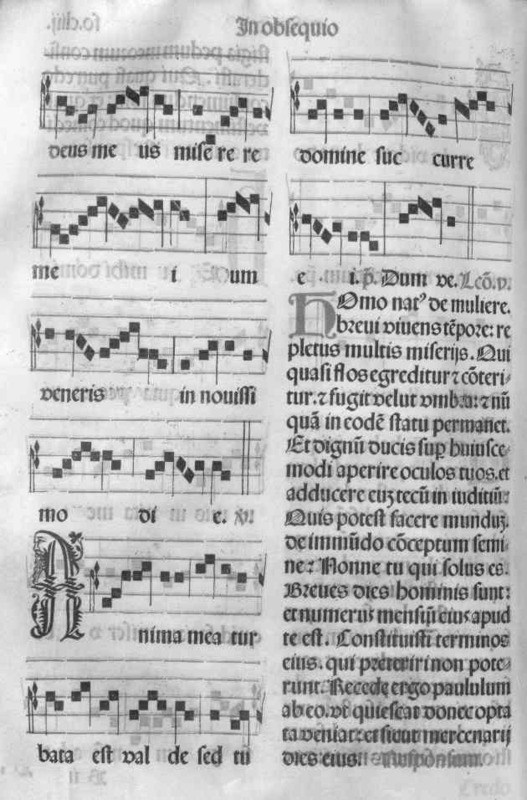 fo.diij.
In obsequio
deus me us misere re re
me i um
veneris in nouissi
mo di e. ℣.
Anima mea tur
bata est val de sed tu
domine suc curre
e i. p̃. Dum ve. Lcõ.v.
HOmo natꝰ de muliere.
breui viuens tẽpore: re
pletus multis miserijs. Qui
quasi flos egreditur ⁊ cõteri-
tur. ⁊ fugit velut vmbra: ⁊ nũ
quã in codẽ statu permanet.
Et dignũ ducis sup̱ huiusce-
modi aperire oculos tuos. et
adducere euʒ tecũ in iuditiũ:
Quis potest facere munduʒ.
de immũdo cõceptum semi-
ne: Nonne tu qui solus es.
Breues dies hominis sunt:
et numerus mensiũ eius apud
te est. Constituisti terminos
eius. qui preteriri non pote-
runt. Recede ergo paululum
ab eo. vt quiescat donec opta
ta veniat: et sicut mercenarij
dies eius: Responsum.